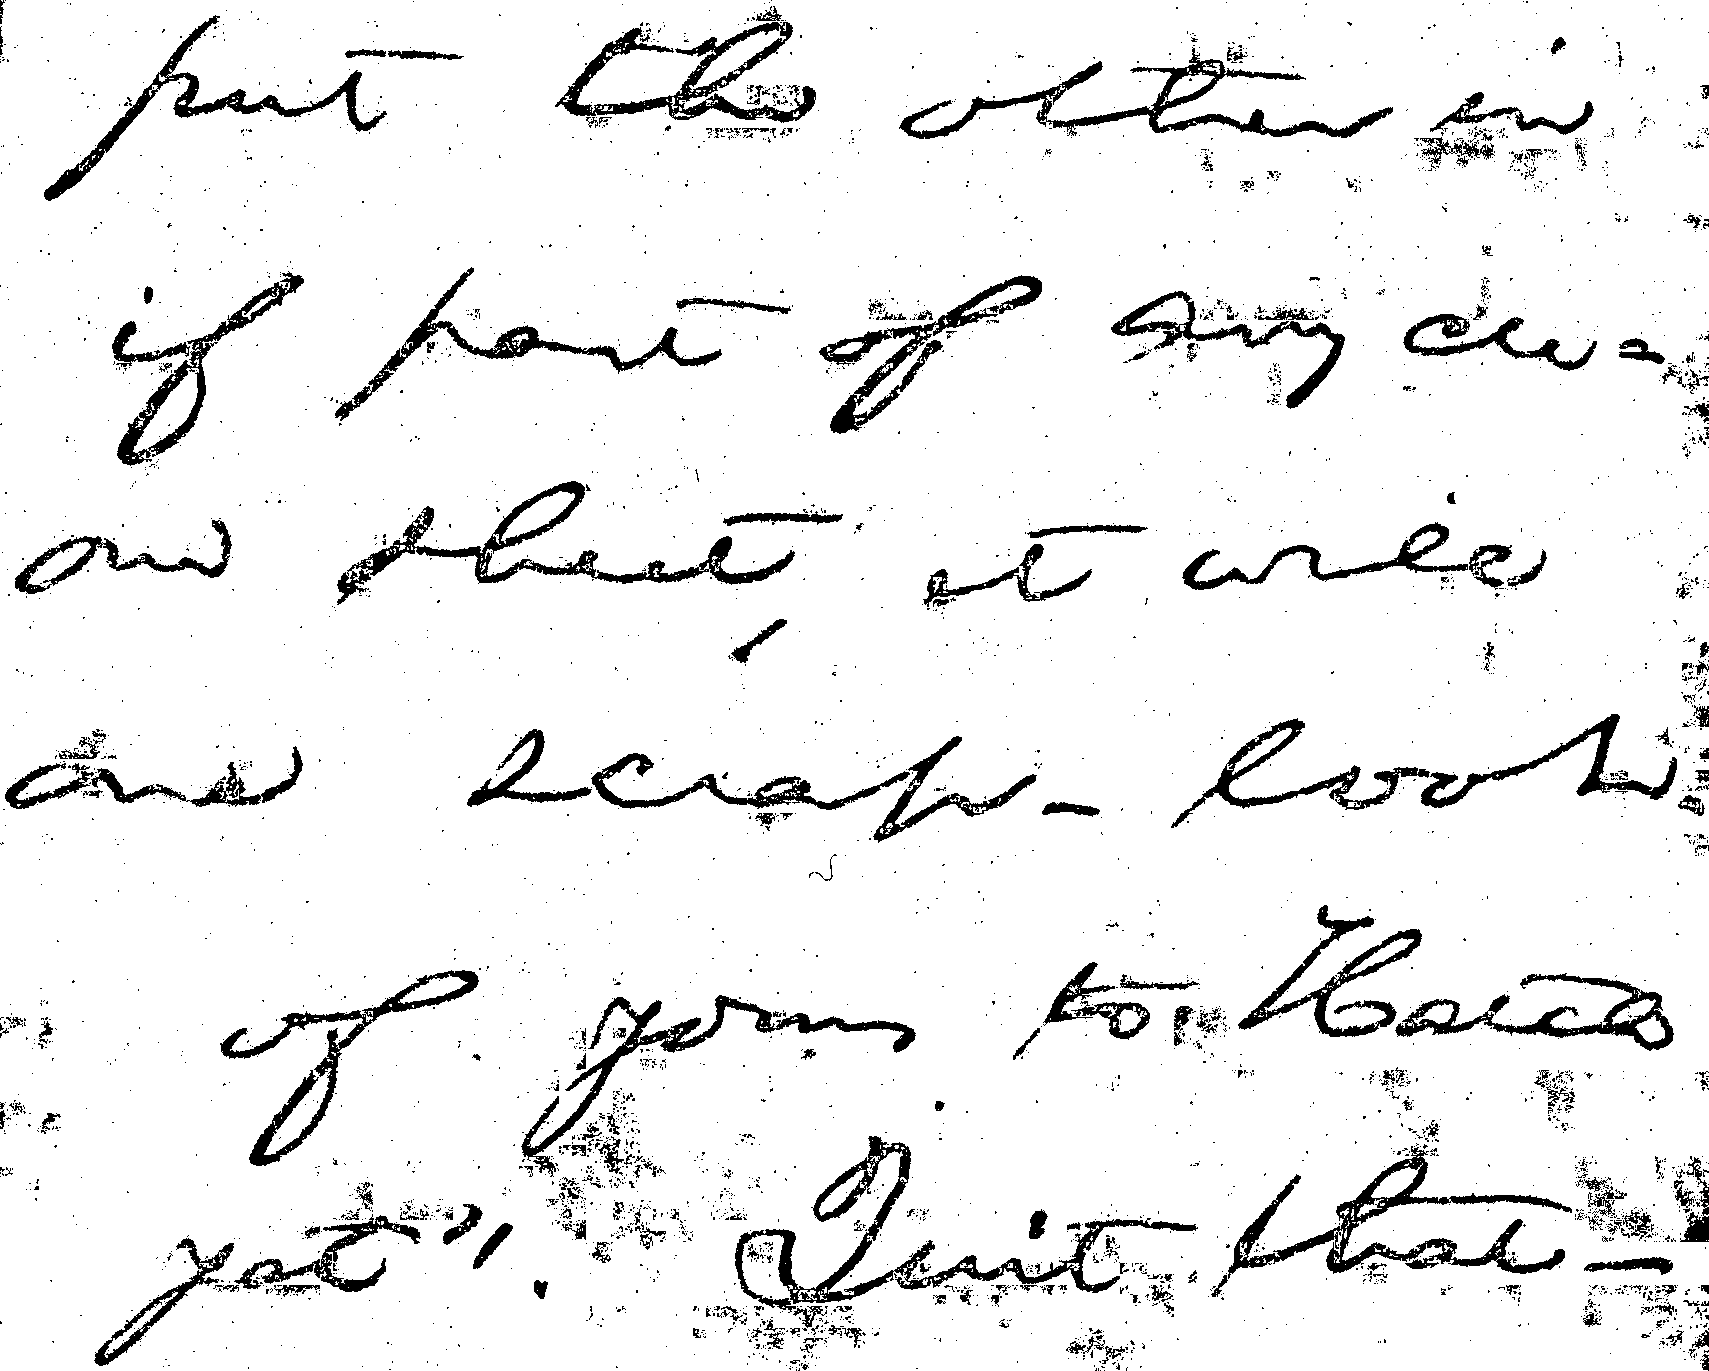 put the other in
if part of any cle=
an sheet, it will
scrap - look
of your to
yet". Quit that -